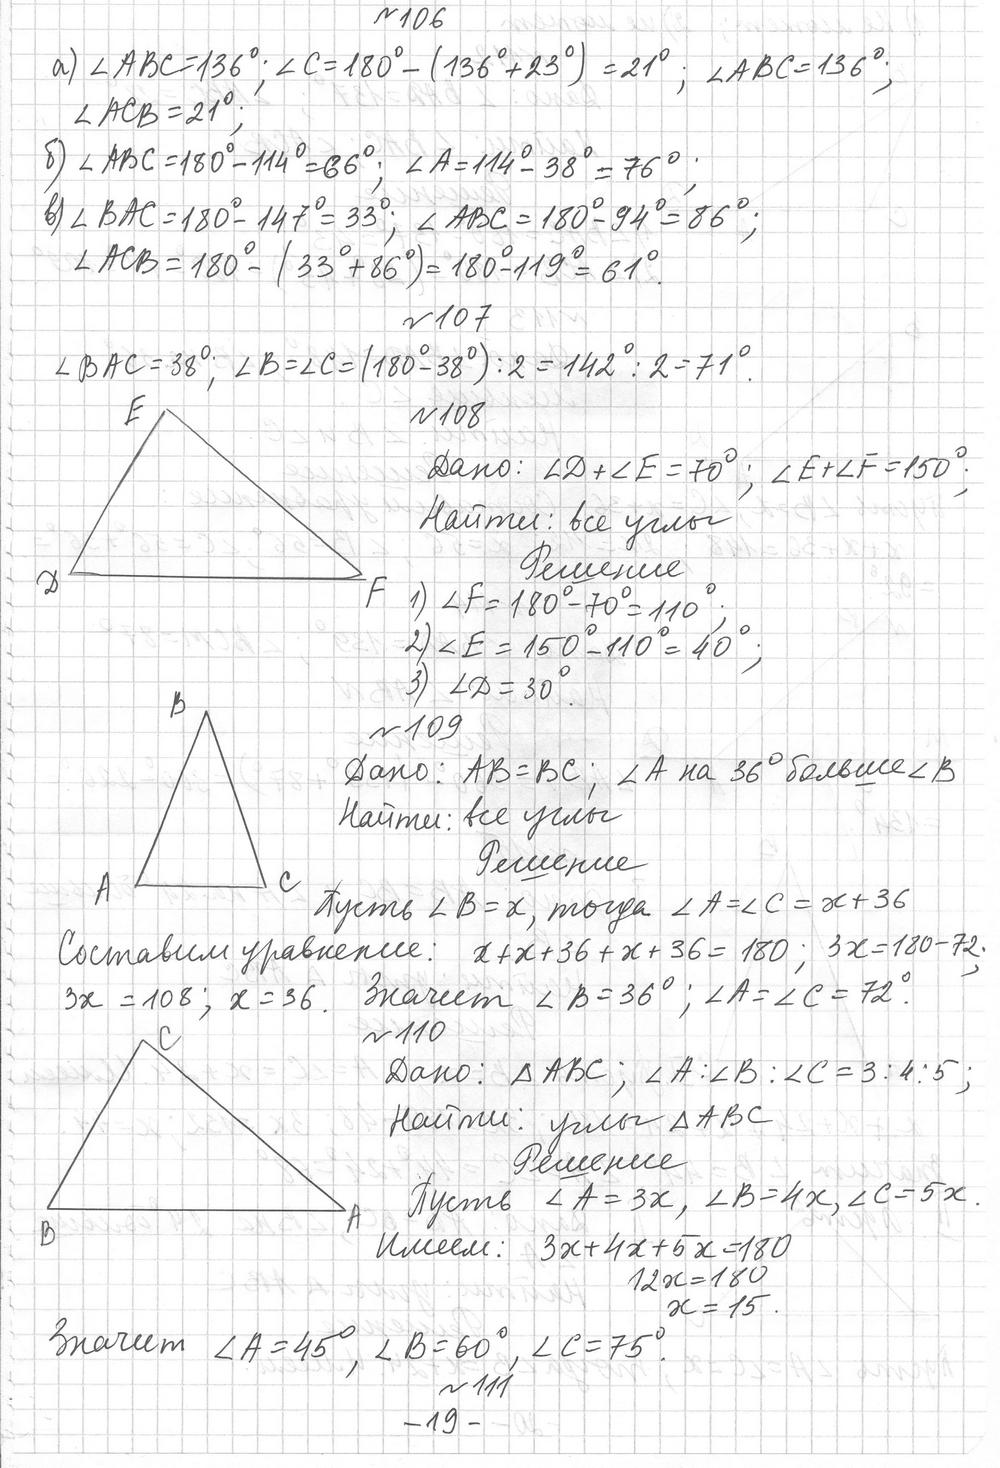 №106
а) ∠ABC=136°; ∠C=180°-(136°+23°)=21°; ∠ABC=136°;
∠ACB=21°;
б) ∠ABC=180°-114°=66°; ∠A=114°-38°=76°;
в) ∠BAC=180°-147°=33°; ∠ABC=180°-94°=86°;
∠ACB=180°-(33°+86°)=180°-119°=61°.
№107
∠BAC=38°; ∠B=∠C=(180°-38°):2=142°:2=71°.
№108
E
D
F
Дано: ∠D+∠E=70°; ∠E+∠F=150°;
Найти: все углы
Решение
1) ∠F=180°-70°=110°;
2) ∠E=150°-110°=40°;
3) ∠D=30°.
№109
B
A
C
Дано: AB=BC; ∠A на 36° больше ∠B
Найти: все углы
Решение
Пусть ∠B=x, тогда ∠A=∠C=x+36
Составим уравнение: x+x+36+x+36=180; 3x=180-72;
3x=108; x=36. Значит ∠B=36°; ∠A=∠C=72°.
№110
C
B
A
Дано: △ABC; ∠A:∠B:∠C=3:4:5;
Найти: углы △ABC
Решение
Пусть ∠A=3x, ∠B=4x, ∠C=5x.
Имеем: 3x+4x+5x=180
12x=180
x=15.
Значит ∠A=45°, ∠B=60°, ∠C=75°.
№111
-19-